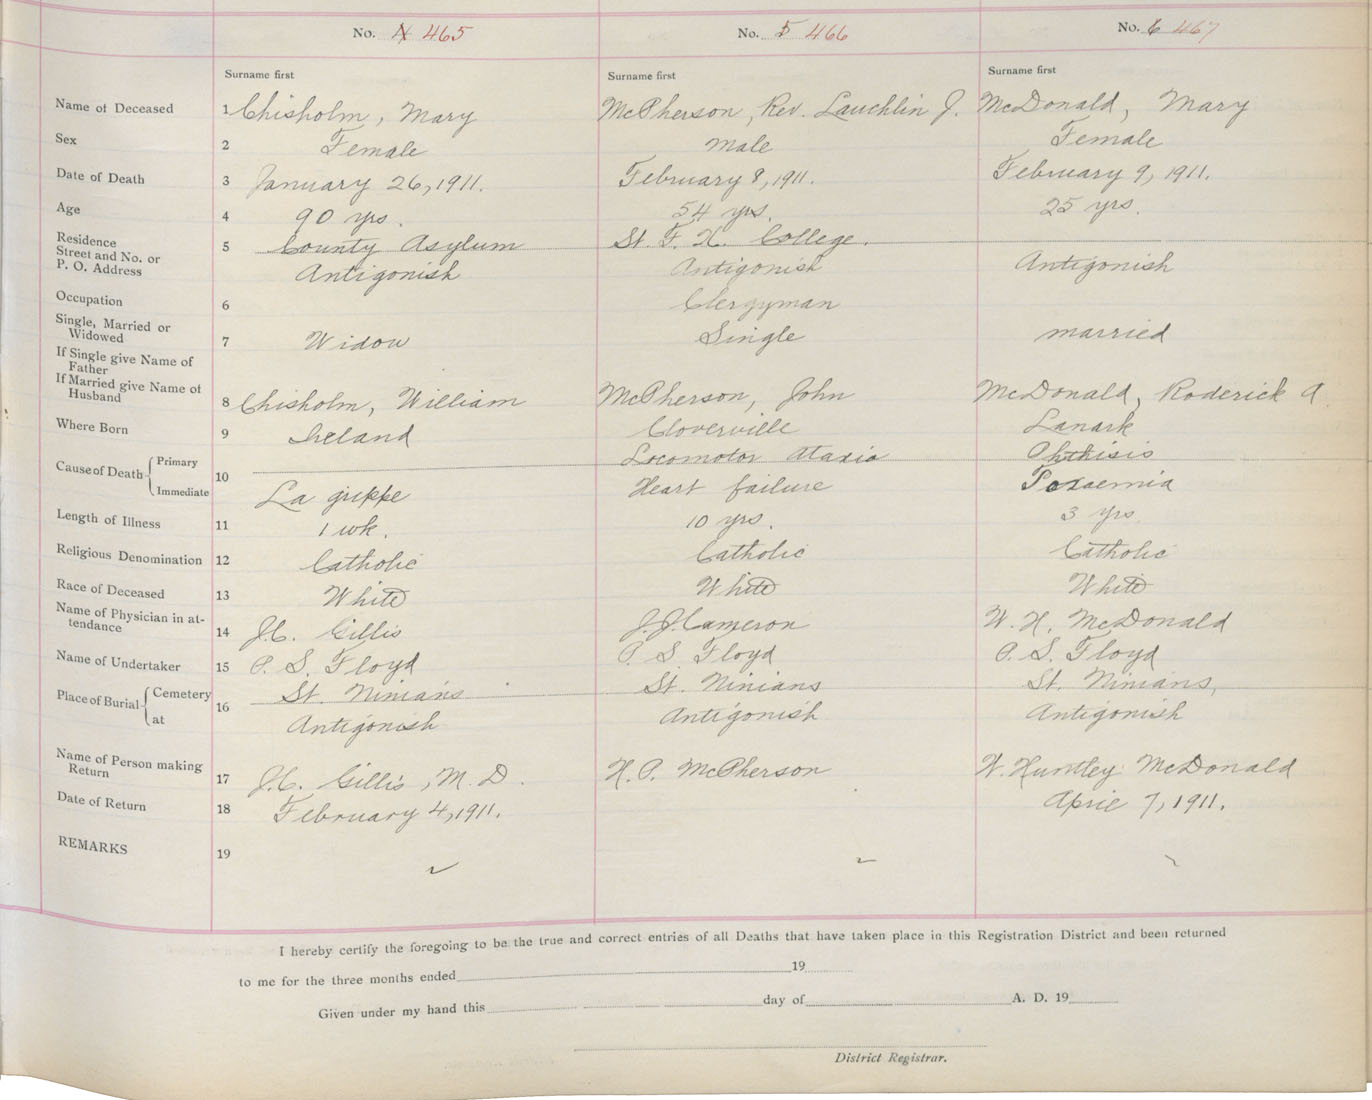 No. 4 465 No. 5 466 No. 6 467
Surname first Surname first Surname first
Name of Deceased 1 Chisholm, Mary McPherson, Rev. Lauchlin J. McDonald, Mary
Sex 2 Female Male Female
Date of Death 3 January 26, 1911. February 8, 1911. February 9, 1911.
Age 4 90 yrs. 54 yrs. 25 yrs.
Residence 5 County Asylum St. F. X. College.
Street and No. or
P. O. Address Antigonish Antigonish Antigonish
Occupation 6 Clergyman
Single, Married or
Widowed 7 Widow Single married
If Single give Name of
Father
If Married give Name of
Husband 8 Chisholm, William McPherson, John McDonald, Roderick A
Where Born 9 Ireland Cloverville Lanark
Cause of Death Primary 10 Locomotor Ataxia Phthisis
Immediate La grippe Heart failure Toxaemia
Length of Illness 11 1 wk. 10 yrs. 3 yrs.
Religious Denomination 12 Catholic Catholic Catholic
Race of Deceased 13 White White White
Name of Physician in at-
tendance 14 J.C. Gillis J.J. Cameron W. H. McDonald
Name of Undertaker 15 P. S. Floyd P. S. Floyd P. S. Floyd
Place of Burial Cemetery 16 St. Ninians St. Ninians St. Ninians,
at Antigonish Antigonish Antigonish
Name of Person making
Return 17 J.C. Gillis, M. D. H. P. McPherson W. Huntley McDonald
Date of Return 18 February 4, 1911. April 7, 1911.
REMARKS 19
I hereby certify the foregoing to be the true and correct entries of all Deaths that have taken place in this Registration District and been returned
to me for the three months ended 19
Given under my hand this day of A. D. 19
District Registrar.